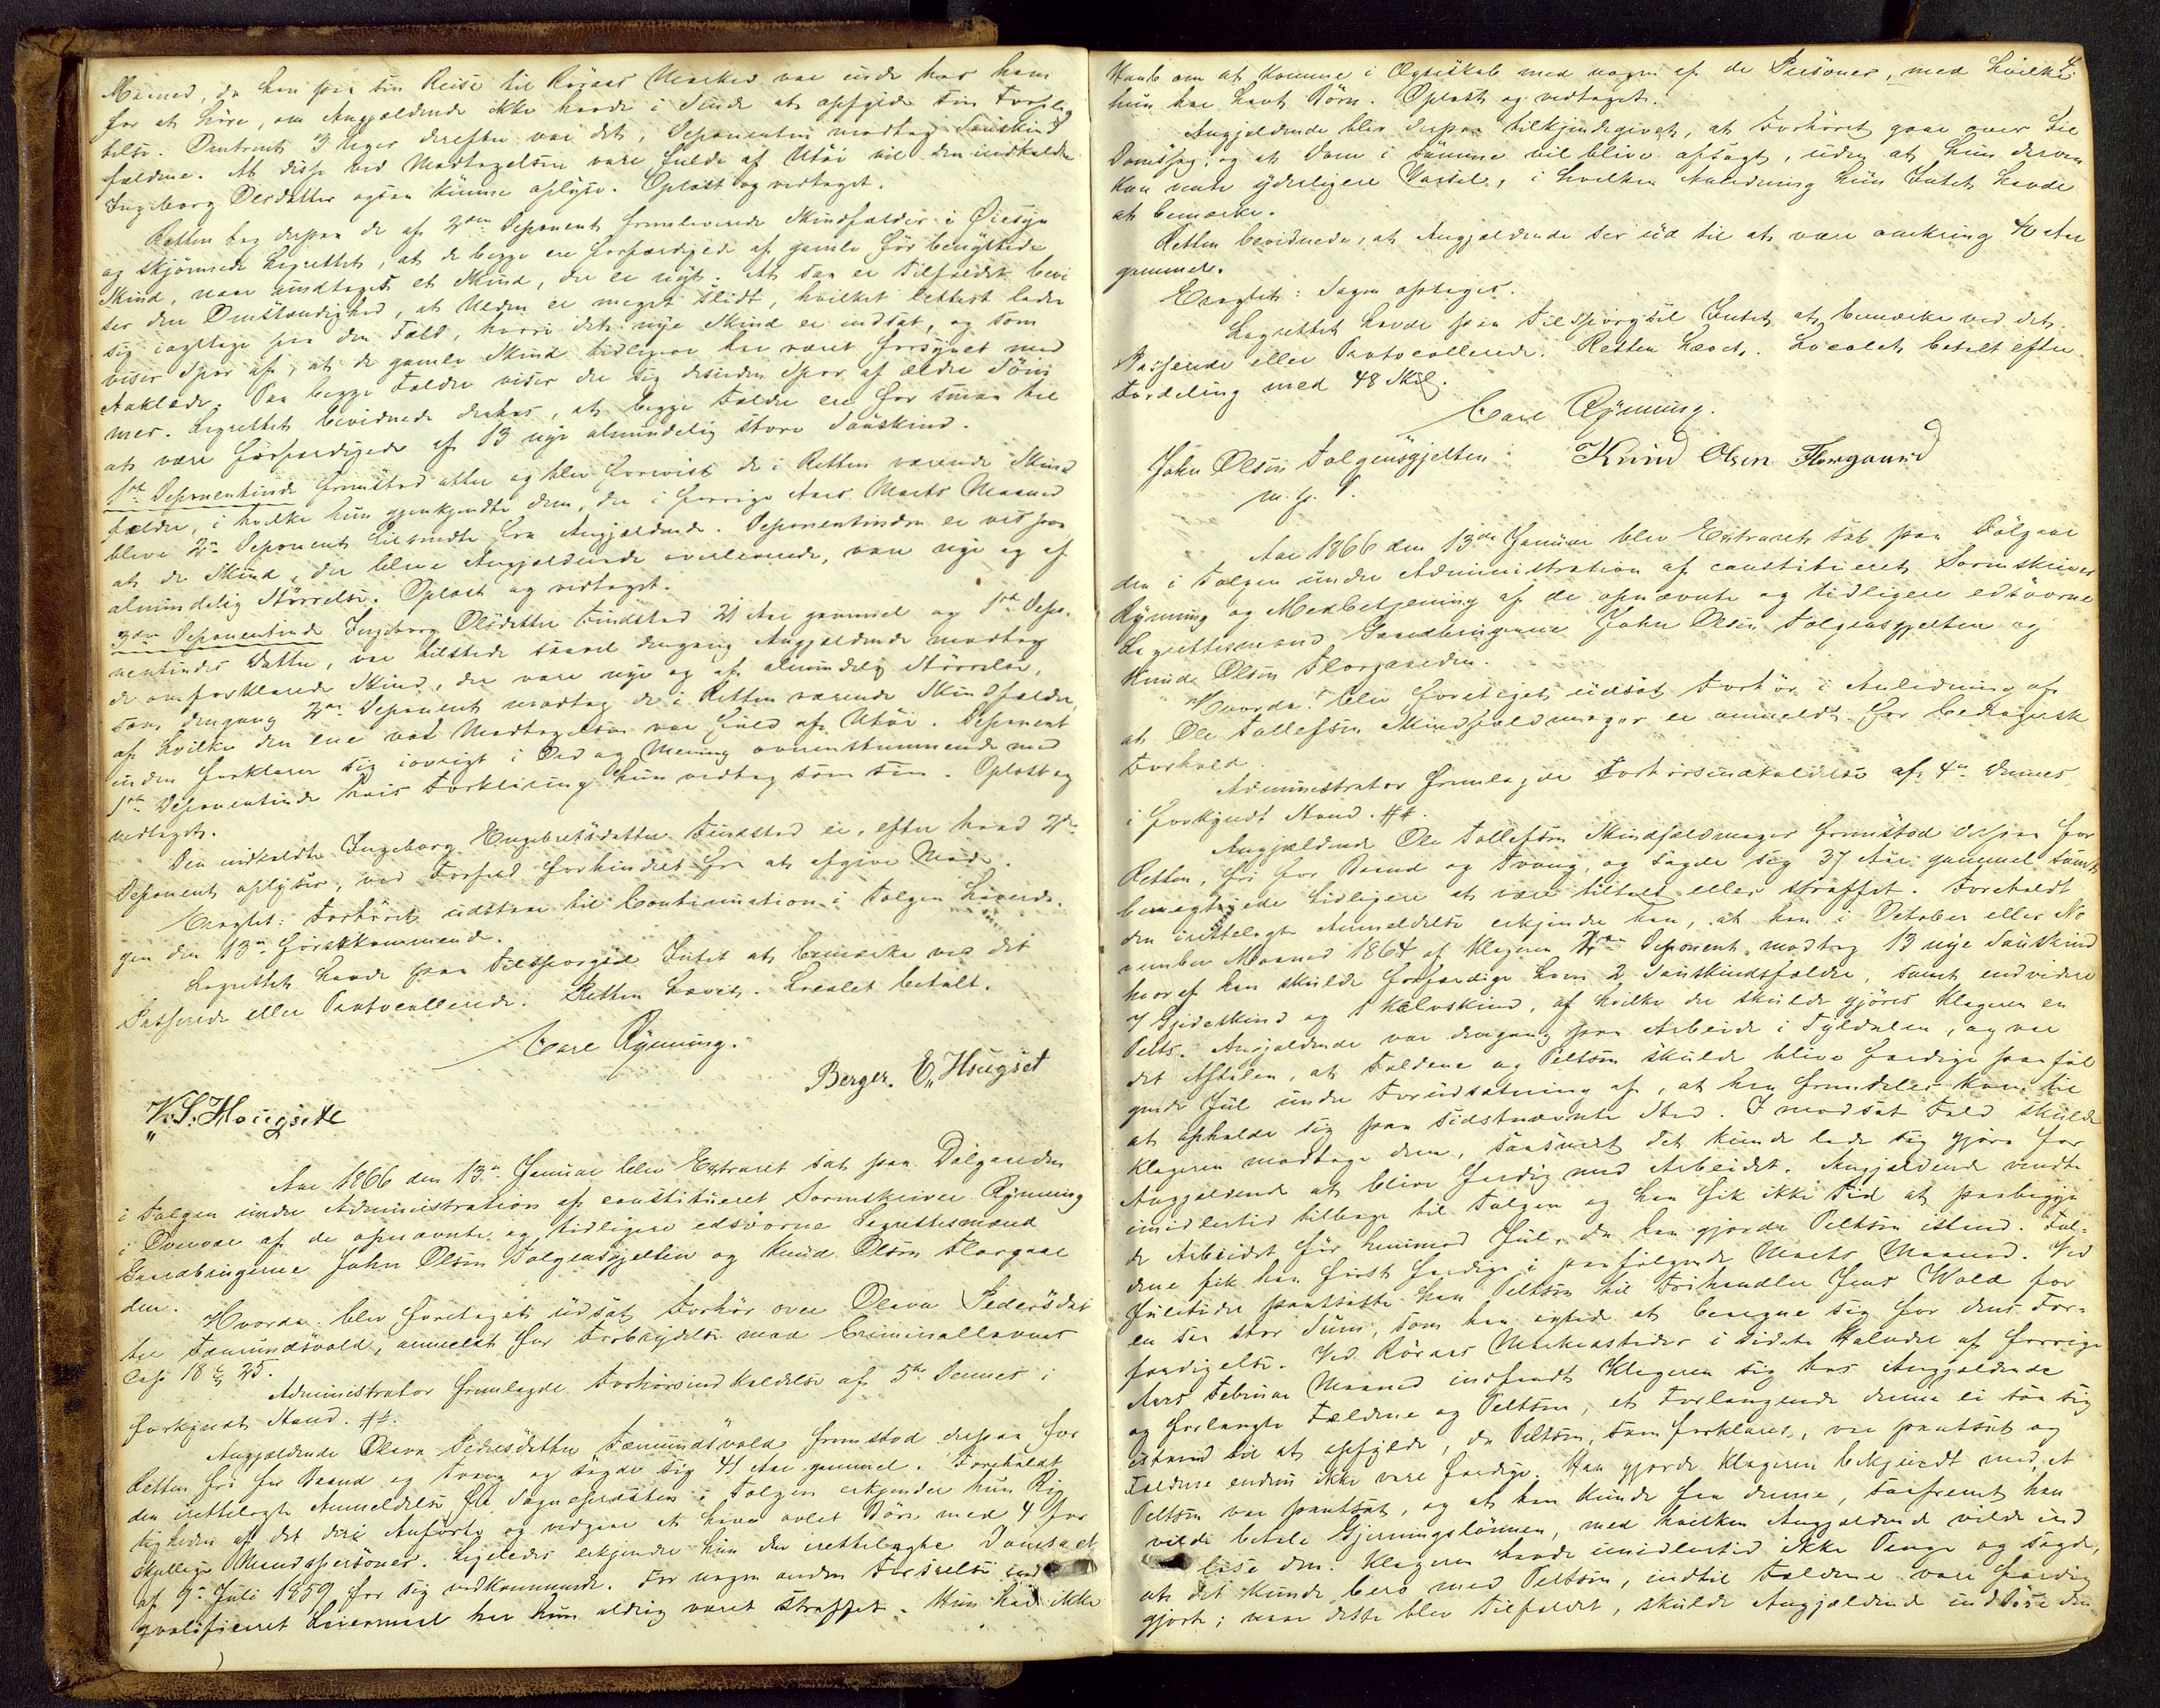 Maaned, da han paa sin Reise til Røraas Marked var inde hos ham
for at høre, om Angjældende ikke havde i Sinde at opfylde sin Forplig
telse. Omtrent 3 Uger derefter var det, Deponenten modtog Sauskind
fældene. At disse ved Modtagelsen vare fulde af Utøi vil den indkaldte
Ingeborg Olsdatter ogsaa kunne oplyse. Oplæst og vedtaget.
Retten tog derpaa de af 2den Deponent fremleverede Skindfælder i Øiesyn
og skjønnede Lagrettet, at de begge ere forfærdigede af gamle før benyttede
Skind, naar undtages et Skind, der er nyt. At saa er Tilfældet bevi
ser den Omstændighed, at Ulden er meget slidt, hvilket lettest lader
sig iagttage paa den Fæld, hvori det nye Skind er indsat, og som
viser Spor af, at de gamle Skind tidligere har været forsynet med
Aaklæde. Paa begge Fælder viser der sig desuden Spor af ældre Søm
mer. Lagrettet bevidnede derhos, at begge Fælder ere for smaa til
at være forfærdigede af 13 nye almindelig store Sauskind.
1ste Deponentinde fremstod atter og blev forevist de i Retten værende Skind
fælder, i hvilke hun gjenkjendte dem, der i forrige Aars Marts Maaned
bleve 2den Deponent tilsendte fra Angjældende. Deponentinden er vis paa
at de Skind, der bleve Angjældende overleverede, vare nye og af
almindelig Størrelse. Oplæst og vedtaget.
3die Deponentinde Ingeborg Olsdatter Fundstad 21 Aar gammel og 1ste Depo-
nentindes Datter, var tilstede saavel dengang Angjældende modtog
de omforklarede Skind, der vare nye og af almindelig Størrelse,
som dengang 2den Deponent modtog de i Retten værende Skindfælder,
af hvilke den ene ved Modtagelsen var fuld af Utøi. Deponent
inden forklarer sig iøvrigt i Ord og Mening overensstemmende med
1ste Deponentinde hvis Forklaring hun vedtog som sin. Oplæst og
vedtaget.
Den indkaldte Ingeborg Engebretsdatter Fundstad er, efter hvad 2den
Deponent oplyser, ved Forfald forhindret fra at afgive Møde.
Eragtet: Forhøret udstaar til Continuation i Tolgen Løverda-
gen den 13de førstkommende.
Lagrettet havde paa Tilspørgsel Intet at bemærke ved det
Passerede eller Protocollerede. Retten hævet. Localet betalt.
Carl Rynning.
Berger. E. Hougset
K. S. Hougsete
Aar 1866 den 13de Januar blev Extraret sat paa Dølgaarden
i Tolgen under Administration af constitueret Sorenskriver Rynning
i Overvær af de opnævnte og tidligere edsvorne Lagrettesmænd
Gaardbrugerne John Olsen Tolgensgjelten og Knud Olsen Florgaar
den.
Hvorda: blev foretaget udsat Forhør over Olava Pedersdat
ter Fæmundsvold, anmeldt for Forbrydelse mod Criminallovens
Cap 18 § 25.
Administrator fremlagde Forhørsindkaldelse af 5te Dennes i
forkyndt Stand. ##.
Angjældende Olava Pedersdatter Fæmundsvold fremstod derpaa for
Retten fri for Baand og Tvang og sagde sig 41 Aar gammel. Foreholdt
den irettelagte Anmeldelse fra Sognepræsten i Tolgen erkjender hun Rig
tigheden af det deri Anførte og vedgaar at have avlet Børn med 4 for
skjellige Mandspersoner. Ligeledes erkjender hun den irettelagte Domsact
af 9de Juli 1859 for sig vedkommende. For nogen anden Forseelse end
qvalificeret Leiermaal har hun aldrig været straffet. Hun har ikke
Haab om at komme i Ægteskab med nogen af de Personer, med hvilke
hun har havt Børn. Oplæst og vedtaget.
Angjældende blev derpaa tilkjendegivet, at Forhøret gaar over til
Domssag, og at Dom i samme vil blive afsagt, uden at hun derom
kan vente yderligere Varsel, i hvilken Anledning hun Intet havde
at bemærke.
Retten bevidnede, at Angjældende ser ud til at være omkring 40 Aar
gammel.
Eragtet: Sagen optages.
Lagrettet havde paa Tilspørgsel Intet at bemærke ved det
Passerede eller Protocollerede. Retten hævet. Localet betalt efter
Fordeling med 48 Skil.
Carl Rynning.
John Olsen Tolgensgjelten Knud Olsen Florgaard
m. p. P.
Aar 1866 den 13de Januar blev Extraret sat paa Dølgaar
den i Tolgen under Administration af constitueret Sorenskriver
Rynning og Medbetjening af de opnævnte og tidligere edsvorne
Lagrettesmænd Gaardbrugerne John Olsen Tolgensgjelten og
Knud Olsen Florgaarden.
Hvorda: blev foretaget udsat Forhør i Anledning af
at Ole Tollefsen Skindfældmager er anmeldt for bedragersk
Forhold.
Administrator fremlagde Forhørsindkaldelse af 4de Dennes
i forkyndt Stand. ##.
Angjældende Ole Tollefsen Skindfældmager fremstod derpaa for
Retten, fri for Baand og Tvang, og sagde sig 37 Aar gammel samt
benægtede tidligere at være tiltalt eller straffet. Foreholdt
den irettelagte Anmeldelse erkjender han, at han i October eller No
vember Maaned 1864 af Klageren 2den Deponent modtog 13 nye Sauskind
hvoraf han skulde forfærdige ham 2 Sauskindsfælder, samt endvidere
7 Gjedeskind og 1 Kalvskind, af hvilke der skulde gjøres Klageren en
Pelts. Angjældende var dengang paa Arbeide i Tyldalen, og var
det Aftalen, at Fældene og Peltsen skulde blive færdige paaføl
gende Jul under Forudsætning af, at han fremdeles kom til
at opholde sig paa sidstnævnte Sted. I modsat Fald skulde
Klageren modtage dem, saasnart det kunde lade sig gjøre for
Angjældende at blive færdig med Arbeidet. Angjældende vendte
imidlertid tilbage til Tolgen og han fik ikke Tid at paabegyn
de Arbeidet før henimod Jul, da han gjorde Peltsen istand. Fæl-
dene fik han først færdige i paafølgende Marts Maaned. Ved
Juletider pantsatte han Peltsen til Frihandler Jens Wold for
en saa stor Sum, som han agtede at beregne sig for dens For-
færdigelse. Ved Røraas Markedstider i sidste Halvdel af forrige
Aars Februar Maaned indfandt Klageren sig hos Angjældende
og forlangte Fældene og Peltsen, et Forlangende denne ei saa sig
istand til at opfylde, da Peltsen, som forklaret, var pantsat og
Fældene endnu ikke vare færdige. Han gjorde Klageren bekjendt med, at
Peltsen var pantsat, og at han kunde faa denne, saafremt han
vilde betale Gjerningslønnen, med hvilken Angjældende vilde ind
løse den. Klageren havde imidlertid ikke Penge og sagde,
at det kunde bero med Peltsen, indtil Fældene vare færdig
gjort; naar dette blev Tilfældet, skulde Angjældende indløse den